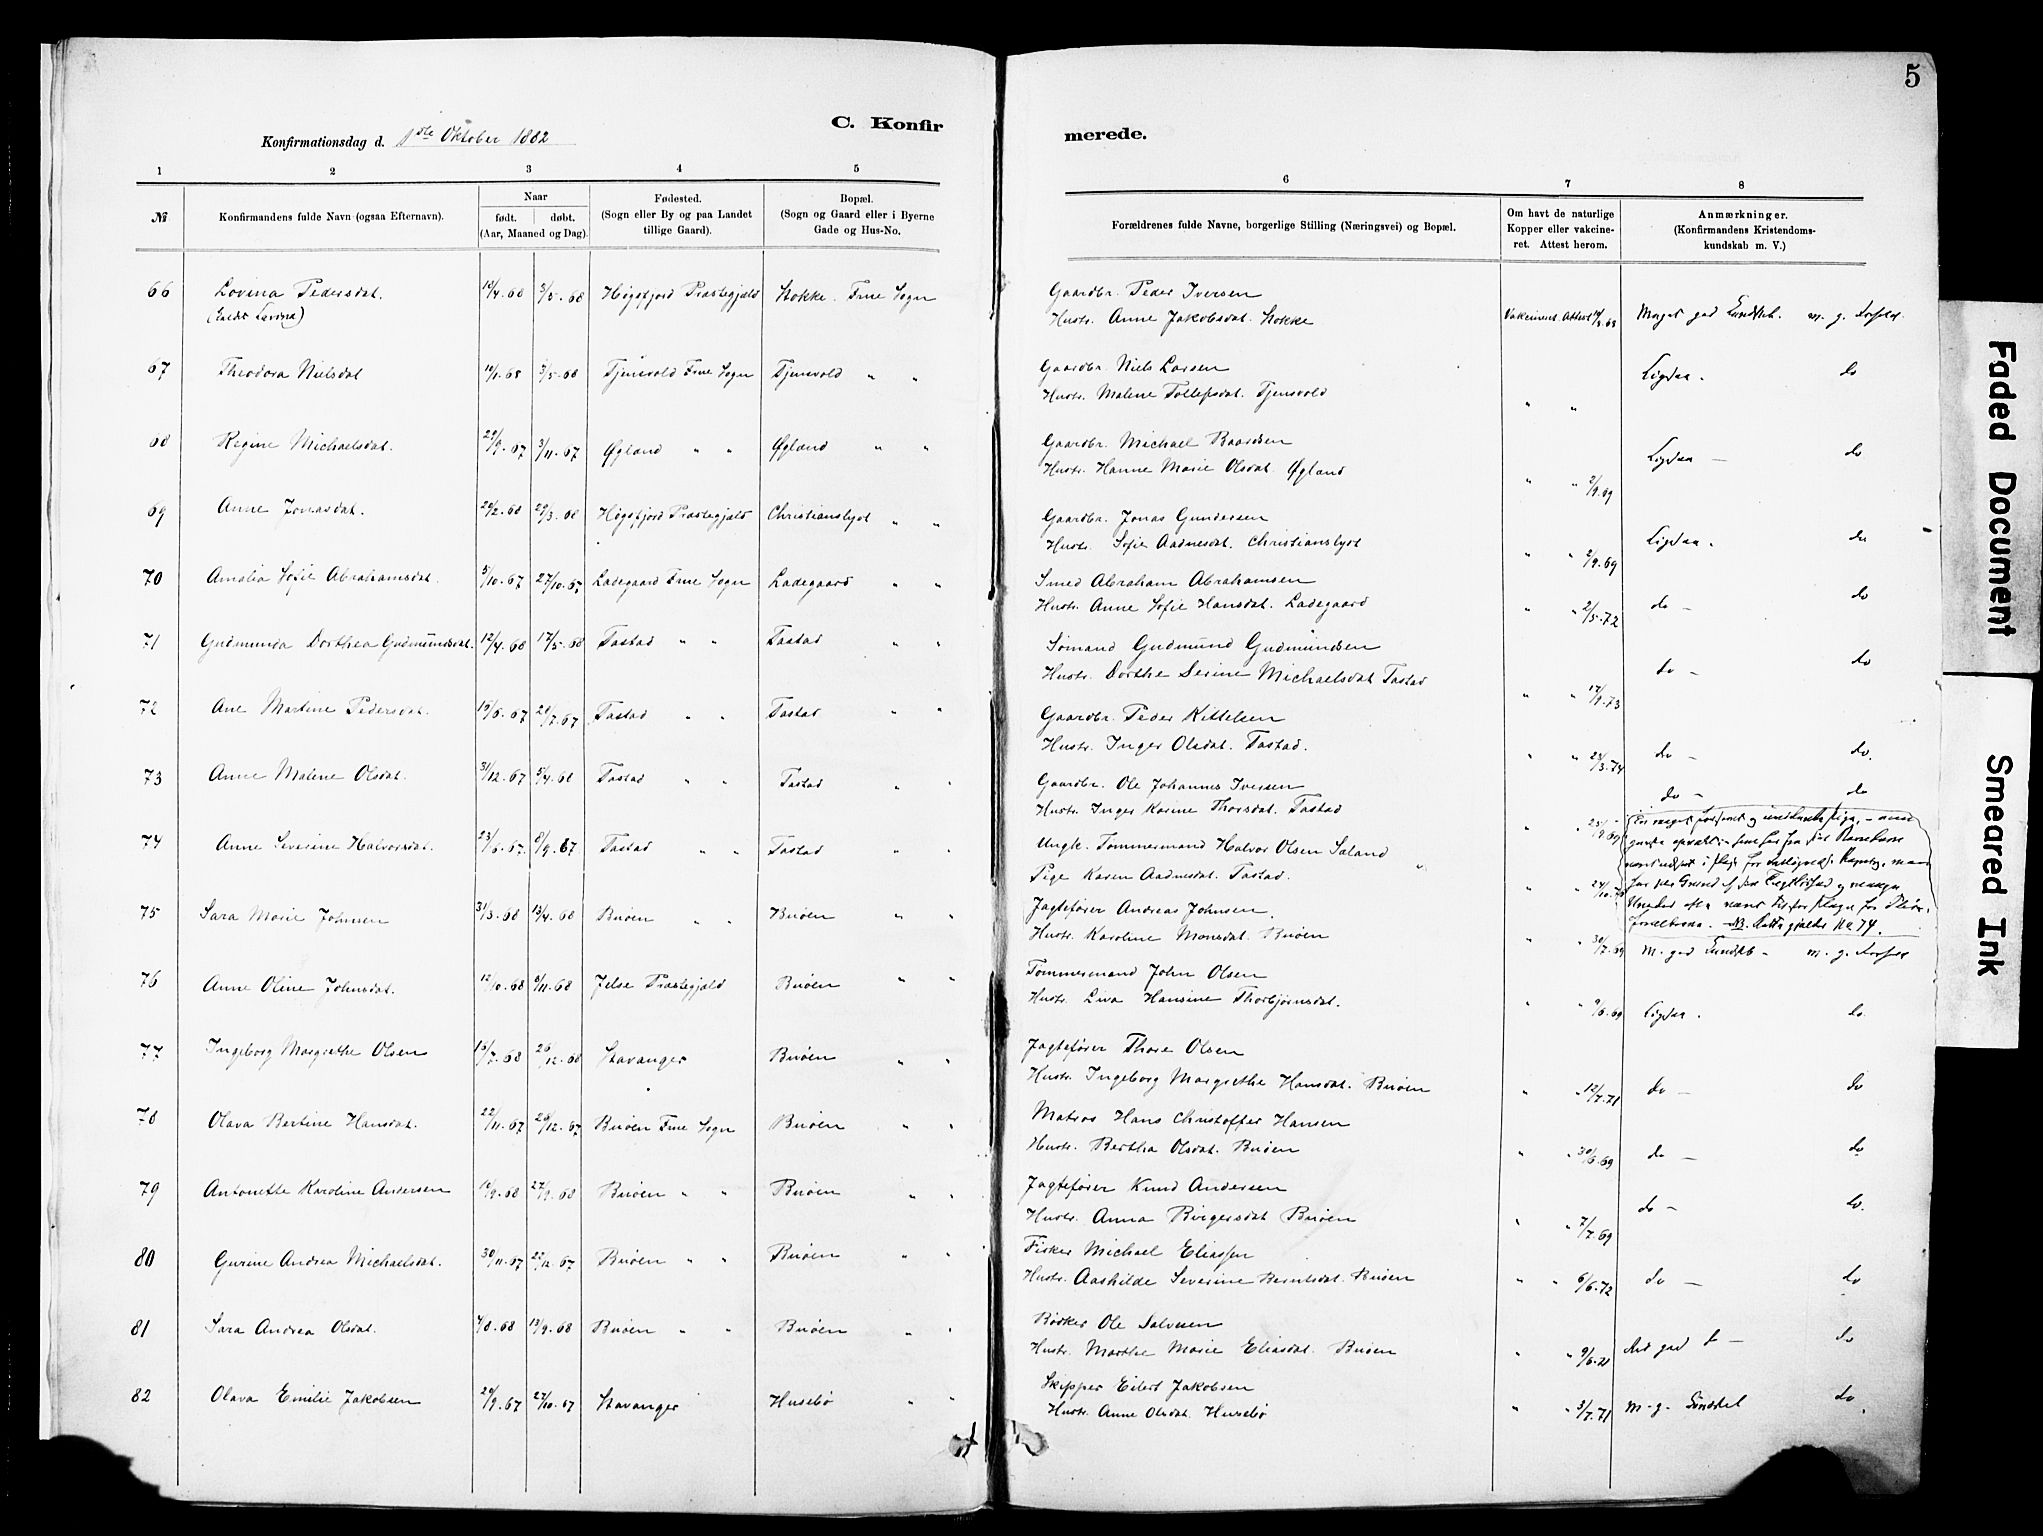 5
C. Konfirmerede.
Konfirmationsdag d. 1ste Oktober 1882
1 2 3 4 5 6 7 8
№
Konfirmandens fulde Navn (ogsaa Efternavn).
Naar
født. døbt.
(Aar, Maaned og Dag).
Fødested.
(Sogn eller By og paa Landet
tillige Gaard).
Bopæl.
(Sogn og Gaard eller i Byerne
Gade og Hus-No.
Forældrenes fulde Navne, borgerlige Stilling (Næringsvei) og Bopæl.
Om havt de naturlige
Kopper eller vakcine-
ret. Attest herom.
Anmærkninger.
(Konfirmandens Kristendoms-
kundskab m. V.)
66 Lovina Pedersdat. 10/4.68 3/5.68 Høgsfjord Præstegjæld Stokke. Frue Sogn Gaardbr. Peder Iversen
(kaldt Lavina) Hustr. Anne Jakobsdat. Stokke Vakcineret Attest Meget god Kundskb. m. g. Forhold.
67 Theodora Nielsdat 10/1.68 3/5.68 Tjensvold Frue Sogn Tjensvold " " Gaardbr. Niels Larsen Ligesaa. do
Hustr. Malene Tollefsdat. Tjensvold " "
68 Regine Michaelsdat. 29/9.67 3/11.67 Øgland " " Øgland " " Gaardbr. Michael Baardsen Ligesaa — do
Hustr. Hanne Marie Olsdat. Øgland " " 2/9.69
69 Anne Jonasdat. 22/2.68 29/3.68 Høgsfjord Præstegjæld Christianslyst " " Gaardbr. Jonas Gundersen Ligesaa. do
Hustr. Sofie Aadnesdat. Christianslyst " " 2/9.69
70 Amalia Sofie Abrahamsdat. 5/10.67 27/10.67 Ladegaard Frue Sogn Ladegaard " " Smed Abraham Abrahamsen do — do
Hustr. Anne Sofie Hansdat. Ladegaard " " 2/5.72
71 Gudmunda Dorthea Gudmundsdat. 12/4.68 17/5.68 Tastad " " Tastad " " Sømand Gudmund Gudmundsen do — do
Hustr. Dorthe Serine Michaelsdat Tastad " " 17/9.73
72 Ane Martine Pedersdat. 19/6.67 21/7.67 Tastad " " Tastad " " Gaardbr. Peder Kittelsen
Hustr. Inger Olsdat. Tastad. " " 23/3.74 do — do.
73 Anne Malene Olsdat. 31/12.67 5/4.68 Tastad " " Tastad " " Gaardbr. Ole Johannes Iversen do — do
Hustr. Inger Karine Thorsdat. Tastad
74 Anne Severine Halvorsdat. 23/6.67 8/9.67 Tastad " " Tastad " " Ungk. Tømmermand Halvor Olsen Saland
Pige Karen Aadnesdat. Tastad. "
NB. Dette gjælder No 74.
75 Sara Marie Johnsen 31/3.68 13/4.68 Buøen " " Buøen " " Jagtefører Andreas Johnsen
Hustr. Karoline Monsdat. Buøen " " 30/7.69 M. god Kundskb — m. g. Forhold
76 Anne Oline Johnsdat. 12/10.68 8/11.68 Jelse Præstegjæld Buøen " " Tømmermand John Olsen
Hustr. Liva Hansine Thorbjørnsdat. " " 9/6.69 Ligesaa. do.
77 Ingeborg Margrethe Olsen 15/7.68 26/12.68 Stavanger Buøen " " Jagtefører Thore Olsen
Hustr. Ingeborg Margrethe Hansdat. Buøen " " 12/7.71 do — do
78 Olava Bertine Hansdat. 22/11.67 26/12.67 Buøen Frue Sogn Buøen " " Matros Hans Christoffer Hansen
Hustr. Bertha Olsdat. Buøen " " 30/6.69 do — do
79 Antonette Karoline Andersen 10/9.68 27/9.68 Buøen " " Buøen " " Jagtefører Knud Andersen do — do.
Hustr. Anna Birgersdat Buøen " " 7/7.69
80 Gurine Andrea Michaelsdat. 30/11.67 22/12.67 Buøen " " Buøen " " Fisker Michael Eliassen
Hustr. Aashilde Severine Berntsdat. Buøen " " 6/6.72 do — do
81 Sara Andrea Olsdat. 4/8.68 13/9.68 Buøen " " Buøen " " Bødker Ole Salvesen
Hustr. Marthe Marie Eliasdat. Buøen " " 9/6.71 do
82 Olava Emilie Jakobsen 29/9.67 27/10.67 Stavanger Husebø " " Skipper Eilert Jakobsen
Hustr. Anne Olsdat. Husebø " " 3/7.71 M. g. Kundskb do
Faded Document
Smeared Ink